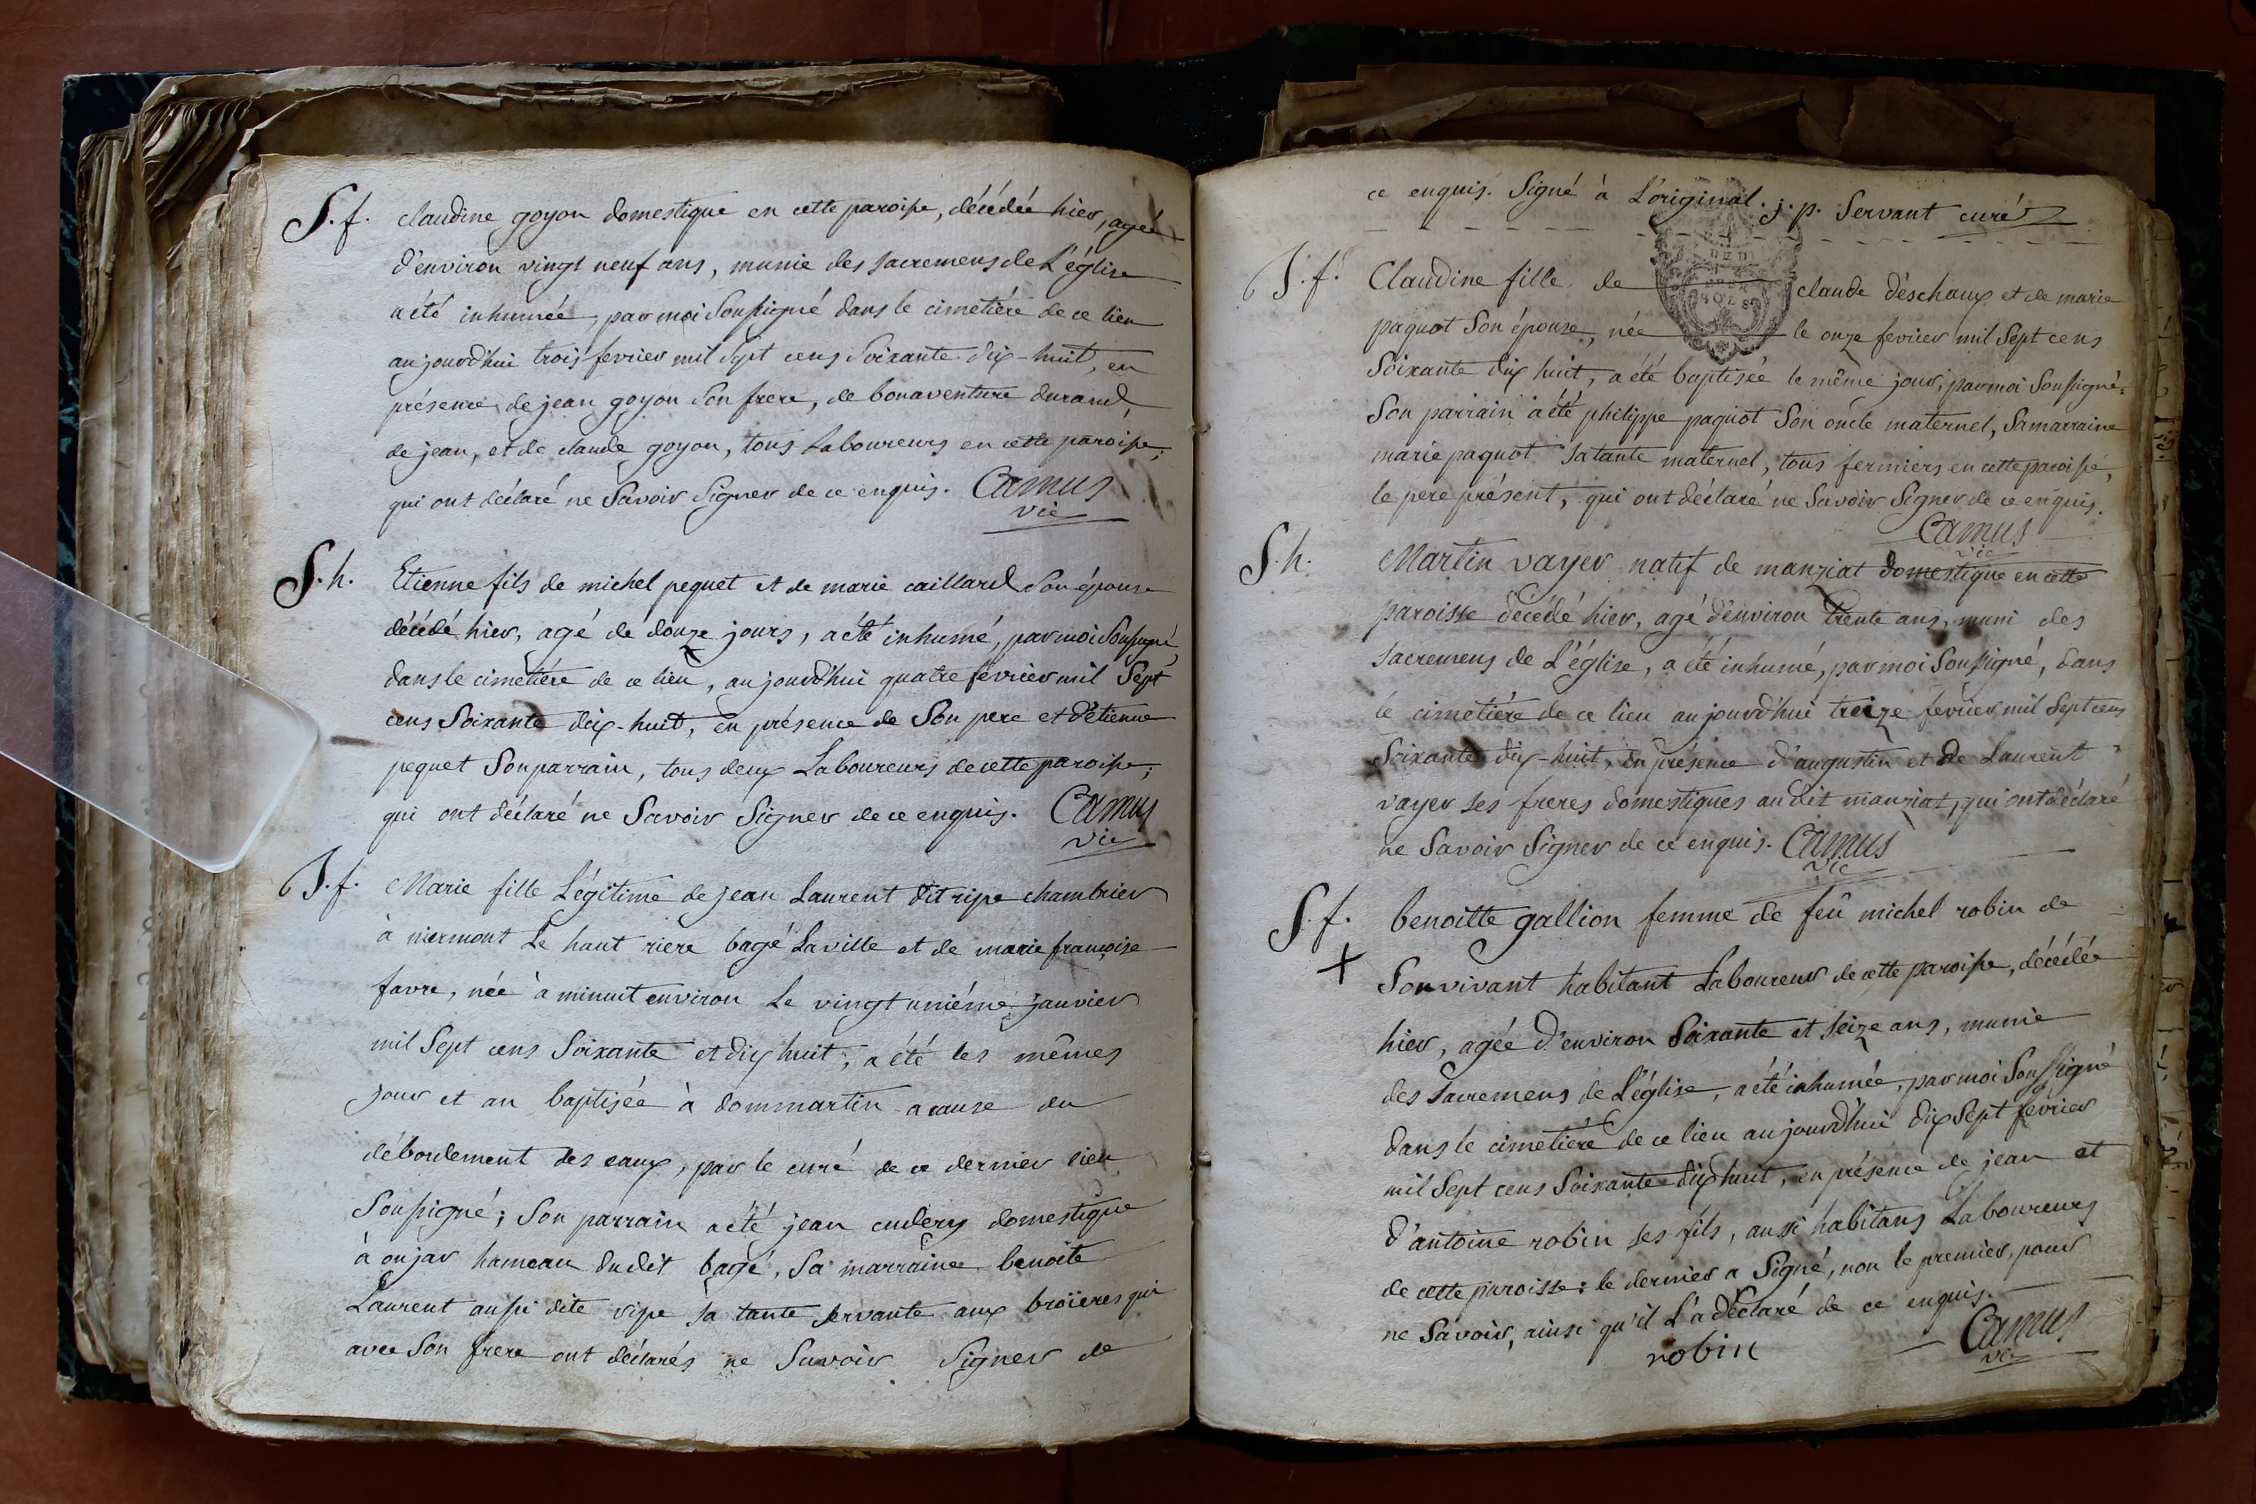 S. f. claudine goyon domestique en cette paroisse, décédée hier, agée
d'environ vingt neuf ans, munie des sacremens de L'église
a été inhumée, par moi Soussigné dans le cimetiére de ce lieu
aujourd'hui trois fevrier mil Sept cens Soixante dix-huit, en
présence de jean goyon Son frere, de bonaventure durand,
de jean, et de claude goyon, tous Laboureurs en cette paroisse;
qui ont déclaré ne Savoir Signer de ce enquis. Camus
vic
S. h. Etienne fils de michel pequet et de marie caillard Son épouse
décédé hier, agé de douze jours, a été inhumé, par moi Soussigné,
dans le cimetiére de ce lieu, aujourd'hui quatre fevrier mil Sept
cens Soixante dix-huit, en présence de Son pere et d'étienne
pequet Son parrain, tous deux Laboureurs de cette paroisse;
qui ont déclaré ne Savoir Signer de ce enquis. Camus
vic
J. f. Marie fille Légitime de jean Laurent dit ripe chambrier
à niermont Le haut riere bagé Laville et de marie françoise
favre, née à minuit environ Le vingt uniéme janvier
mil Sept cens Soixante et dix huit; a été les mêmes
jour et an baptisée à dommartin a cause du
débordement des eaux, par le curé de ce dernier lieu
Soussigné; Son parrain a été jean cudery domestique
à onjar hameau dudit bagé, Sa marraine benoite
Laurent aussi dite ripe sa tante servante aux broïeres qui
avec Son frere ont déclarés ne Savoir Signer de
ce enquis. Signé à L'original. j. p. Servant curé
J. f. Claudine fille de claude déschaux et de marie
paquot Son épouse, née le onze fevrier mil Sept cens
Soixante dix huit, a été baptisée le même jour, par moi Soussigné.
Son parrain a été philippe paquot Son oncle maternel, Sa marraine
marie paquot sa tante maternel, tous fermiers en cette paroisse,
le pere présent, qui ont déclaré ne Savoir Signer de ce enquis.
Camus
vic
S. h. Martin vayer natif de manziat domestique en cette
paroisse décédé hier, agé d'environ trente ans, muni des
sacremens de L'église, a été inhumé, par moi Soussigné, dans
le cimetiére de ce lieu aujourd'hui treize fevrier mil Sept cens
Soixante dix-huit, en présence d'augustin et de Laurent
vayer ses freres domestiques au dit manziat, qui ont déclaré
ne Savoir Signer de ce enquis. Camus
vic
S. f. benoitte gallion femme de feû michel robin de
Son vivant habitant Laboureur de cette paroisse, décédée
hier, agée d'environ Soixante et seize ans, munie
des sacremens de L'église, a été inhumée, par moi Soussigné
dans le cimetiére de ce lieu aujourd'hui dix Sept fevrier
mil Sept cens Soixante dix huit, en présence de jean et
d'antoine robin ses fils, aussi habitans Laboureurs
de cette paroisse: le dernier a Signé, non le premier, pour
ne Savoir, ainsi qu'il L'a déclaré de ce enquis.
robin Camus
vic